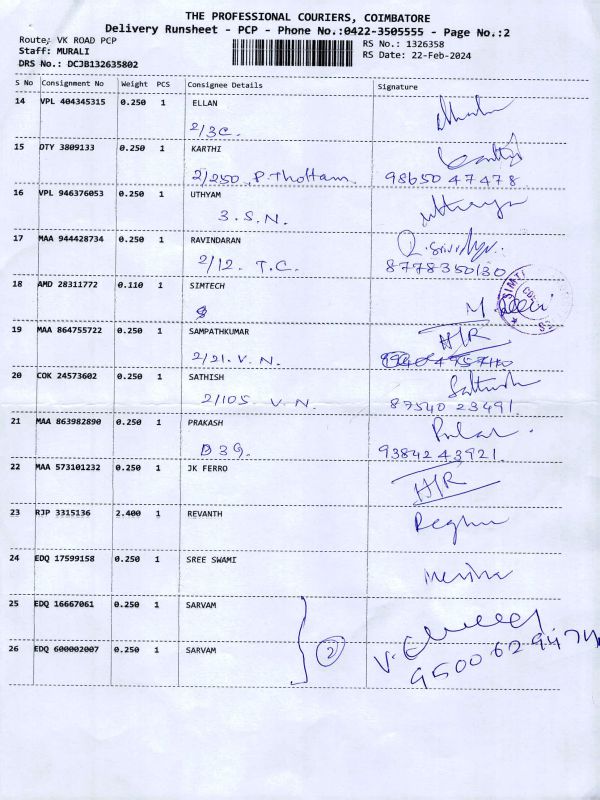 THE PROFESSIONAL COURIERS, COIMBATORE
Delivery Runsheet - PCP - Phone No.:0422-3505555 - Page No.:2
Route: VK ROAD PCP
RS No.: 1326358
Staff: MURALI
RS Date: 22-Feb-2024
DRS No.: DCJB132635802
S No Consignment No Weight PCS Consignee Details Signature
14 VPL 404345315 0.250 1 ELLAN
2/3C.
15 DTY 3809133 0.250 1 KARTHI
2/250, P. Thottam 98650 47478
16 VPL 946376053 0.250 1 UTHYAM
3. S. N.
17 MAA 944428734 0.250 1 RAVINDARAN
2/12. T.C. 8778350130
18 AMD 28311772 0.110 1 SIMTECH
19 MAA 864755722 0.250 1 SAMPATHKUMAR H/R
2/21. V. N.
20 COK 24573602 0.250 1 SATHISH Sathish
2/105. V. N. 87540 23491
21 MAA 863982890 0.250 1 PRAKASH
D 39. 9384243921.
22 MAA 573101232 0.250 1 JK FERRO H/R
23 RJP 3315136 2.400 1 REVANTH
24 EDQ 17599158 0.250 1 SREE SWAMI
25 EDQ 16667061 0.250 1 SARVAM
26 EDQ 600002007 0.250 1 SARVAM
2